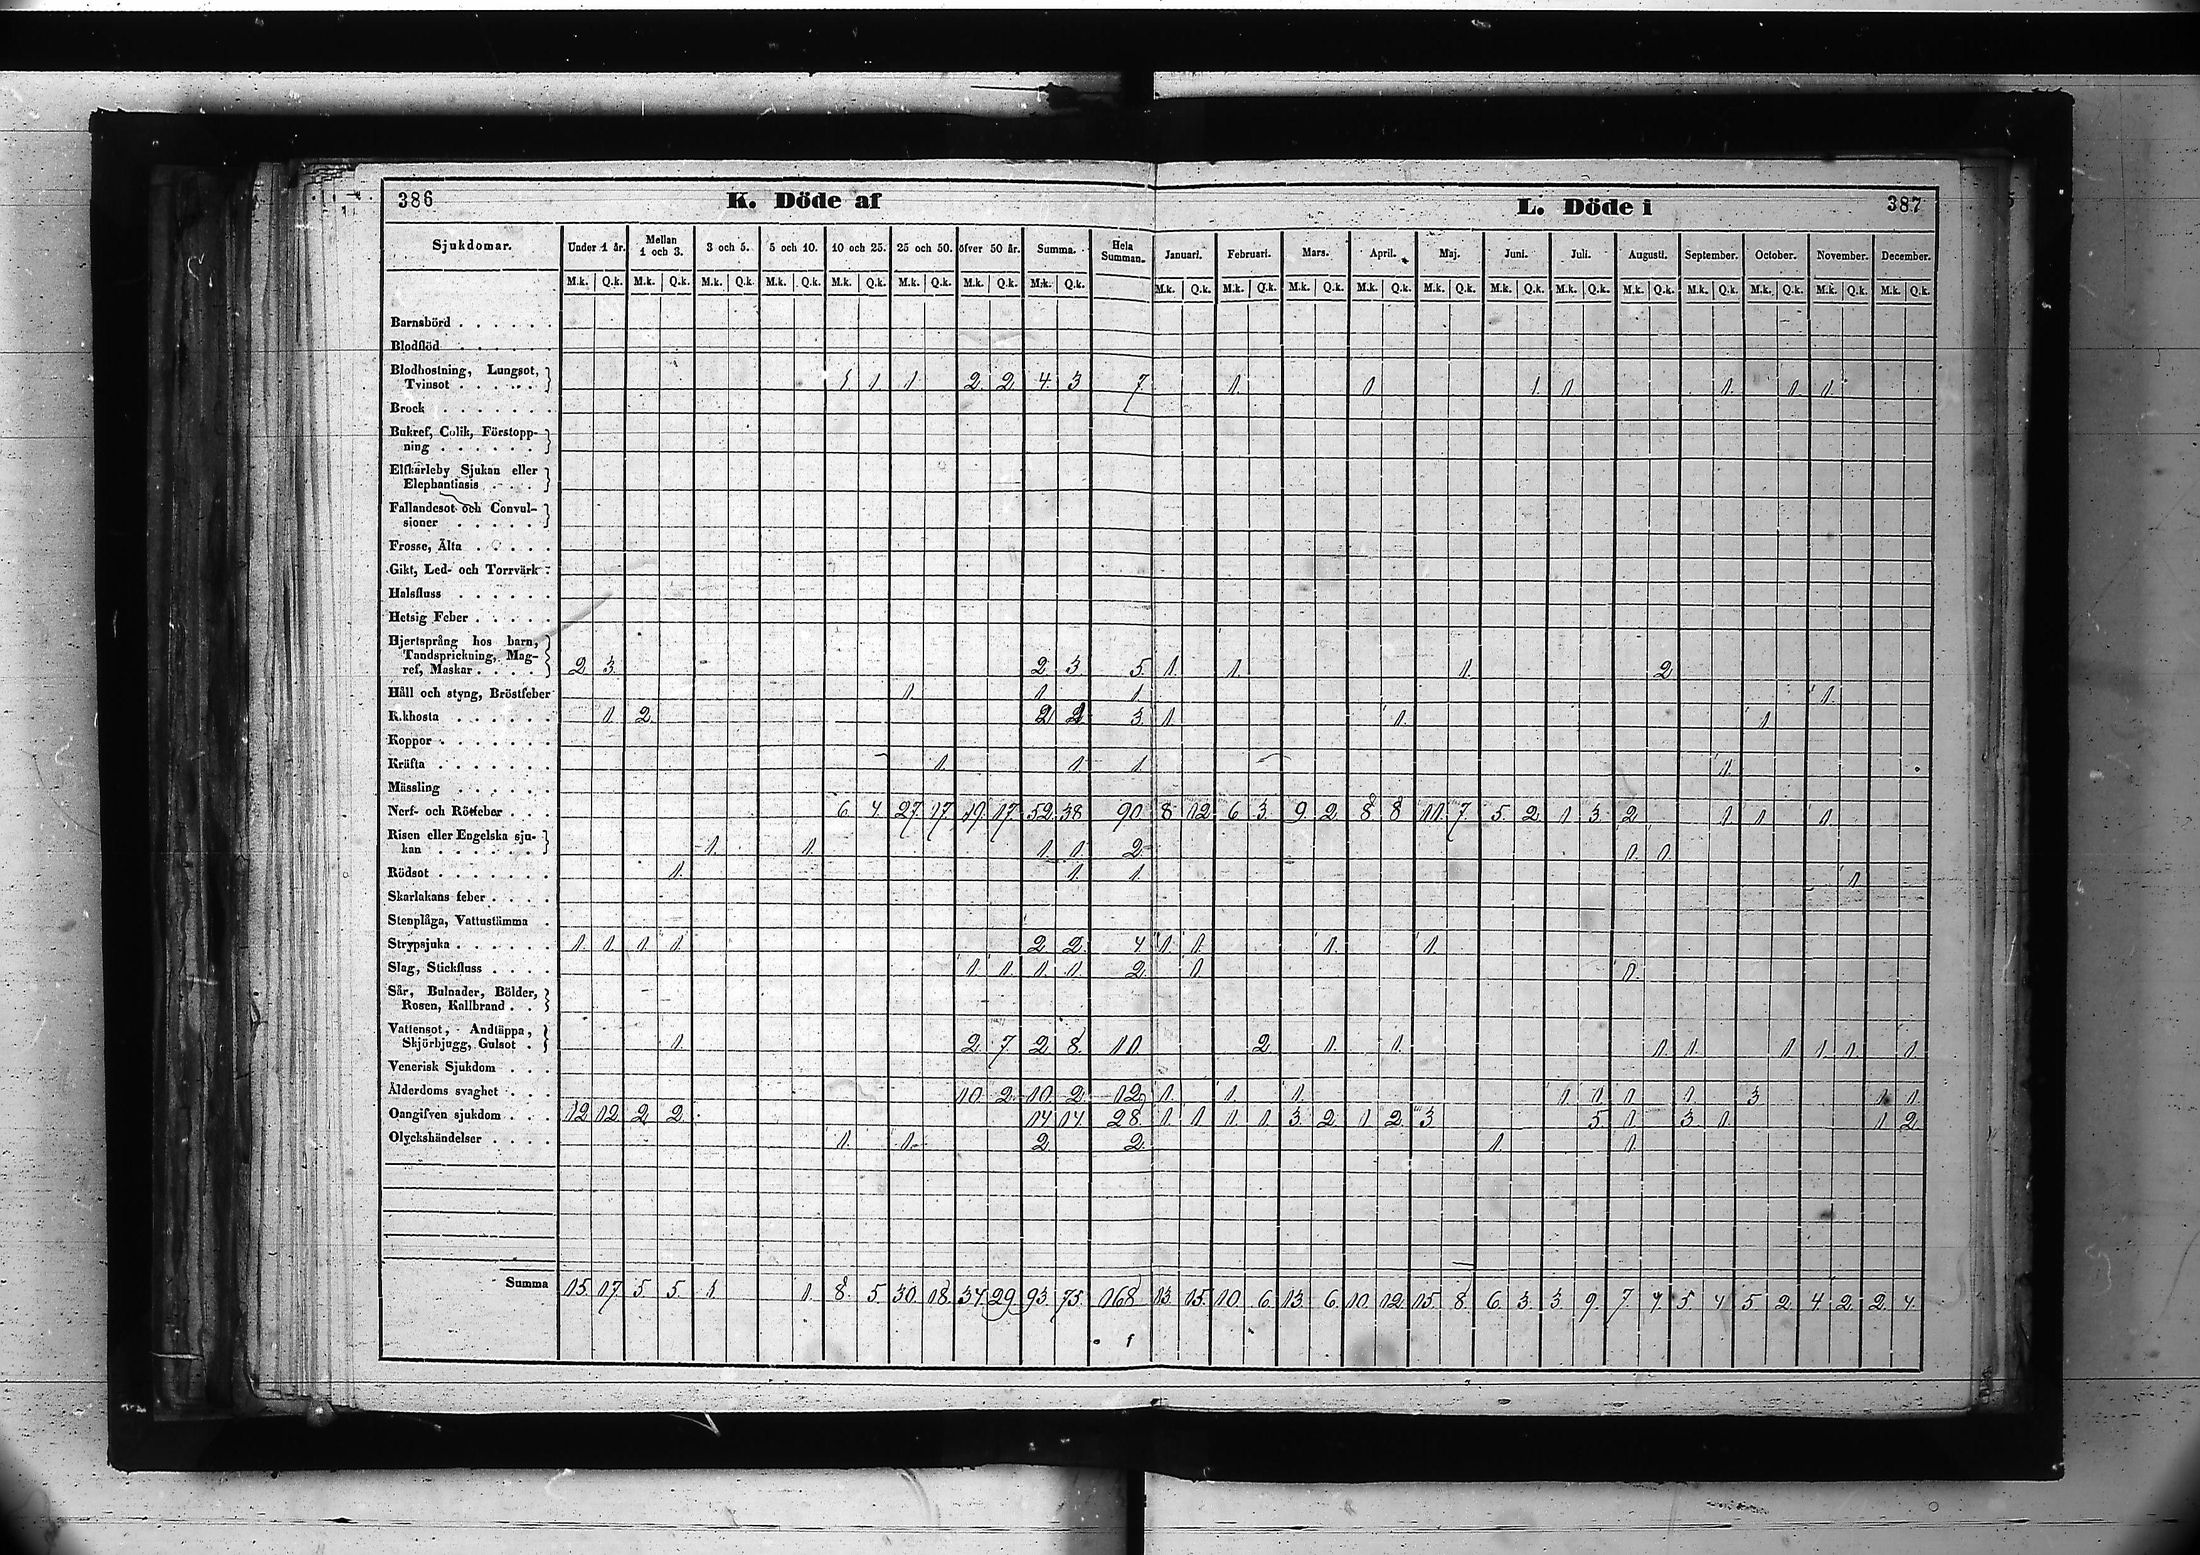 386 K. Döde af L. Döde i 387
Sjukdomar. Under 1 år. Mellan 1 och 3. 3 och 5. 5 och 10. 10 och 25. 25 och 50. öfver 50 år. Summa. Hela Summan. Januari. Februari. Mars. April. Maj. Juni. Juli. Augusti. September. October. November. December.
M.k. Q.k. M.k. Q.k. M.k. Q.k. M.k. Q.k. M.k. Q.k. M.k. Q.k. M.k. Q.k. M.k. Q.k. M.k. Q.k. M.k. Q.k. M.k. Q.k. M.k. Q.k. M.k. Q.k. M.k. Q.k. M.k. Q.k. M.k. Q.k. M.k. Q.k. M.k. Q.k. M.k. Q.k. M.k. Q.k.
Barnsbörd . . . . . .
Blodflöd . . . . . .
Blodhostning, Lungsot,
Tvinsot . . . . . 1 1 1 2. 2. 4. 3. 7. 1. 1. 1. 1. 1. 1. 1.
Brock . . . . . . .
Bukref, Colik, Förstopp-
ning . . . . . .
Elfkarleby Sjukan eller
Elephantiasis . . . .
Fallandesot och Convul-
sioner . . . . .
Frosse, Älta . . . . .
Gikt, Led- och Torrvärk .
Halsfluss . . . . . .
Hetsig Feber . . . . .
Hjertsprång hos barn,
Tandsprickning, Mag-
ref, Maskar . . . . 2. 3. 2. 3. 5. 1. 1. 1. 2.
Håll och styng, Bröstfeber 1. 1. 1. 1.
K.khosta . . . . . . 1. 2. 2 3. 1. 1. 1.
Koppor . . . . . . .
Kräfta . . . . . . . 1. 1. 1. 1.
Mässling . . . . . .
Nerf- och Rötfeber . . . 6. 4. 27. 17. 19. 17. 52. 38. 90. 8. 12. 6. 3. 9. 2. 8. 8. 11. 7. 5. 2. 1. 3. 2. 1. 1. 1.
Risen eller Engelska sju-
kan . . . . . . . 1. 1. 1. 1. 2. 1. 1.
Rödsot . . . . . . . 1. 1. 1. 1.
Skarlakans feber . . . .
Stenplåga, Vattustämma .
Strypsjuka . . . . . . 1. 1. 1. 1. 2. 2. 4. 1. 1. 1. 1.
Slag, Stickfluss . . . . 1. 1. 1. 1. 2. 1. 1.
Sår, Bulnader, Bölder,
Rosen, Kallbrand . .
Vattensot, Andtäppa,
Skjörbjugg, Gulsot . 1. 2. 7. 2. 8. 10. 2. 1. 1. 1. 1. 1. 1. 1. 1.
Venerisk Sjukdom . . .
Ålderdoms svaghet . . . 10. 2. 10. 2. 12. 1. 1. 1. 1. 1. 1. 1. 3. 1. 1.
Oangifven sjukdom . . . 12. 12. 2. 2. 14. 14. 28. 1. 1. 1. 1. 3. 2. 1. 2. 3. 5. 1. 3. 1. 1. 2.
Olyckshändelser . . . . 1. 1. 2. 2. 1. 1.
Summa 15. 17. 5. 5. 1. 1. 8. 5. 30. 18. 34. 29. 93. 75. 168. 13. 15. 10. 6. 13. 6. 10. 12. 15. 8. 6. 3. 3. 9. 7. 4. 5. 4. 5. 2. 4. 2. 2. 4.